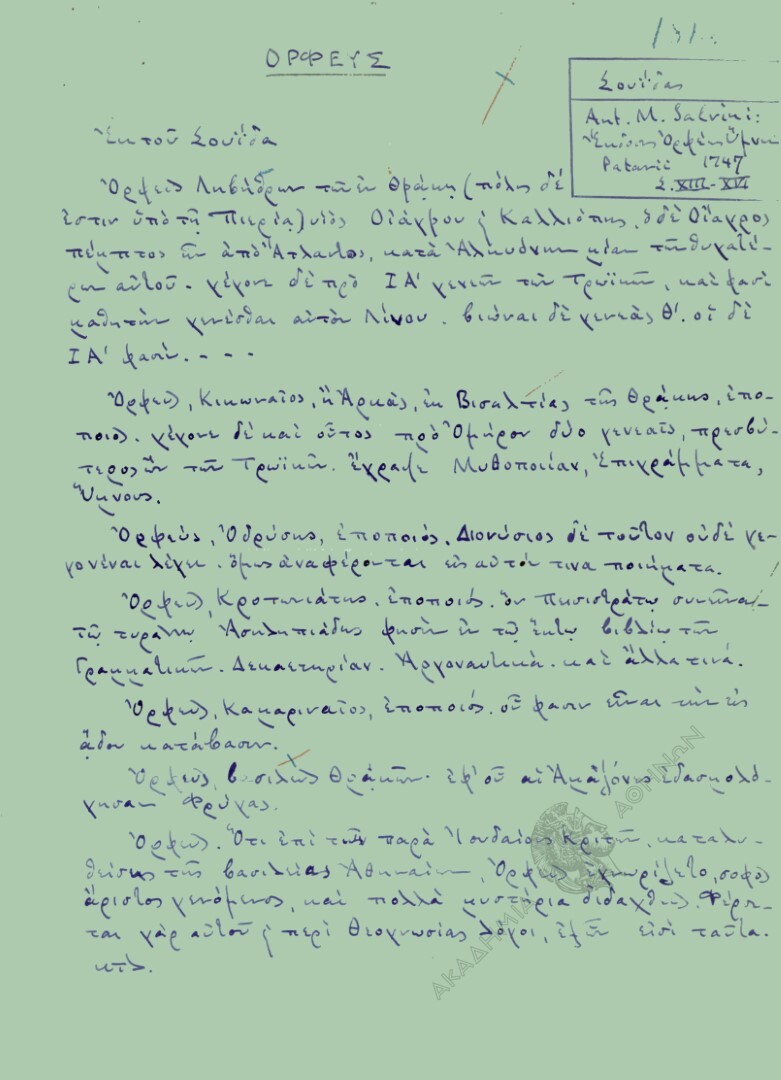 131
ΟΡΦΕΥΣ
Σουΐδας
Ant. M. Salvini:
Ἔκδοσις Ὀρφέως Ὕμνοι
Patavii 1747
Σ. XIII-XVI
Ἐκ τοῦ Σουΐδα
Ὀρφεὺς Λιβήθρων τῶν ἐν Θράκῃ (πόλις δέ
ἐστιν ὑπὸ τῇ Πιερίᾳ) υἱὸς Οἰάγρου καὶ Καλλιόπης, ὁ δὲ Οἴαγρος
πέμπτος ἦν ἀπὸ Ἄτλαντος, κατὰ Ἀλκυόνην μίαν τῶν θυγατέ-
ρων αὐτοῦ. γέγονε δὲ πρὸ ΙΑ' γενεῶν τῶν Τρωϊκῶν, καὶ φασὶ
μαθητὴν γενέσθαι αὐτὸν Λίνου. βιῶναι δὲ γενεὰς θ'. οἱ δὲ
ΙΑ' φασίν. - - -
Ὀρφεύς, Κικωναῖος, ἢ Ἀρκάς, ἐκ Βισαλτίας τῆς Θράκης, ἐπο-
ποιός. γέγονε δὲ καὶ οὗτος πρὸ Ὁμήρου δύο γενεαῖς, πρεσβύ-
τερος ὢν τῶν Τρωϊκῶν. Ἔγραψε Μυθοποιίαν, Ἐπιγράμματα,
Ὕμνους.
Ὀρφεύς, Ὀδρύσης, ἐποποιός. Διονύσιος δὲ τοῦτον οὐδὲ γε-
γονέναι λέγει. ὅμως ἀναφέρονται εἰς αὐτόν τινα ποιήματα.
Ὀρφεύς, Κροτωνιάτης. ἐποποιός. ὃν Πεισιστράτῳ συνεῖναι
τῷ τυράννῳ Ἀσκληπιάδης φησὶν ἐν τῷ ἕκτῳ βιβλίῳ τῶν
Γραμματικῶν. Δεκαετηρίαν. Ἀργοναυτικά. καὶ ἄλλα τινά.
Ὀρφεύς, Καμαριναῖος, ἐποποιός. οὗ φασιν εἶναι τὴν εἰς
ᾅδου κατάβασιν.
Ὀρφεύς, βασιλεὺς Θρᾳκῶν. ἐφ' οὗ αἱ Ἀμαζόνες ἐδασμολό-
γησαν Φρύγας.
Ὀρφεύς. Ὅτι ἐπὶ τῶν παρὰ Ἰουδαίοις Κριτῶν, καταλυ-
θείσης τῆς βασιλείας Ἀθηναίων, Ὀρφεὺς ἐγνωρίζετο, σοφὸς
ἄριστος γενόμενος, καὶ πολλὰ μυστήρια διδαχθείς. Φέρον-
ται γὰρ αὐτοῦ καὶ περὶ Θεογνωσίας λόγοι, ἐξ ὧν εἰσὶ ταῦτα.
κτλ.
ΑΚΑΔΗΜΙΑ ΑΘΗΝΩΝ